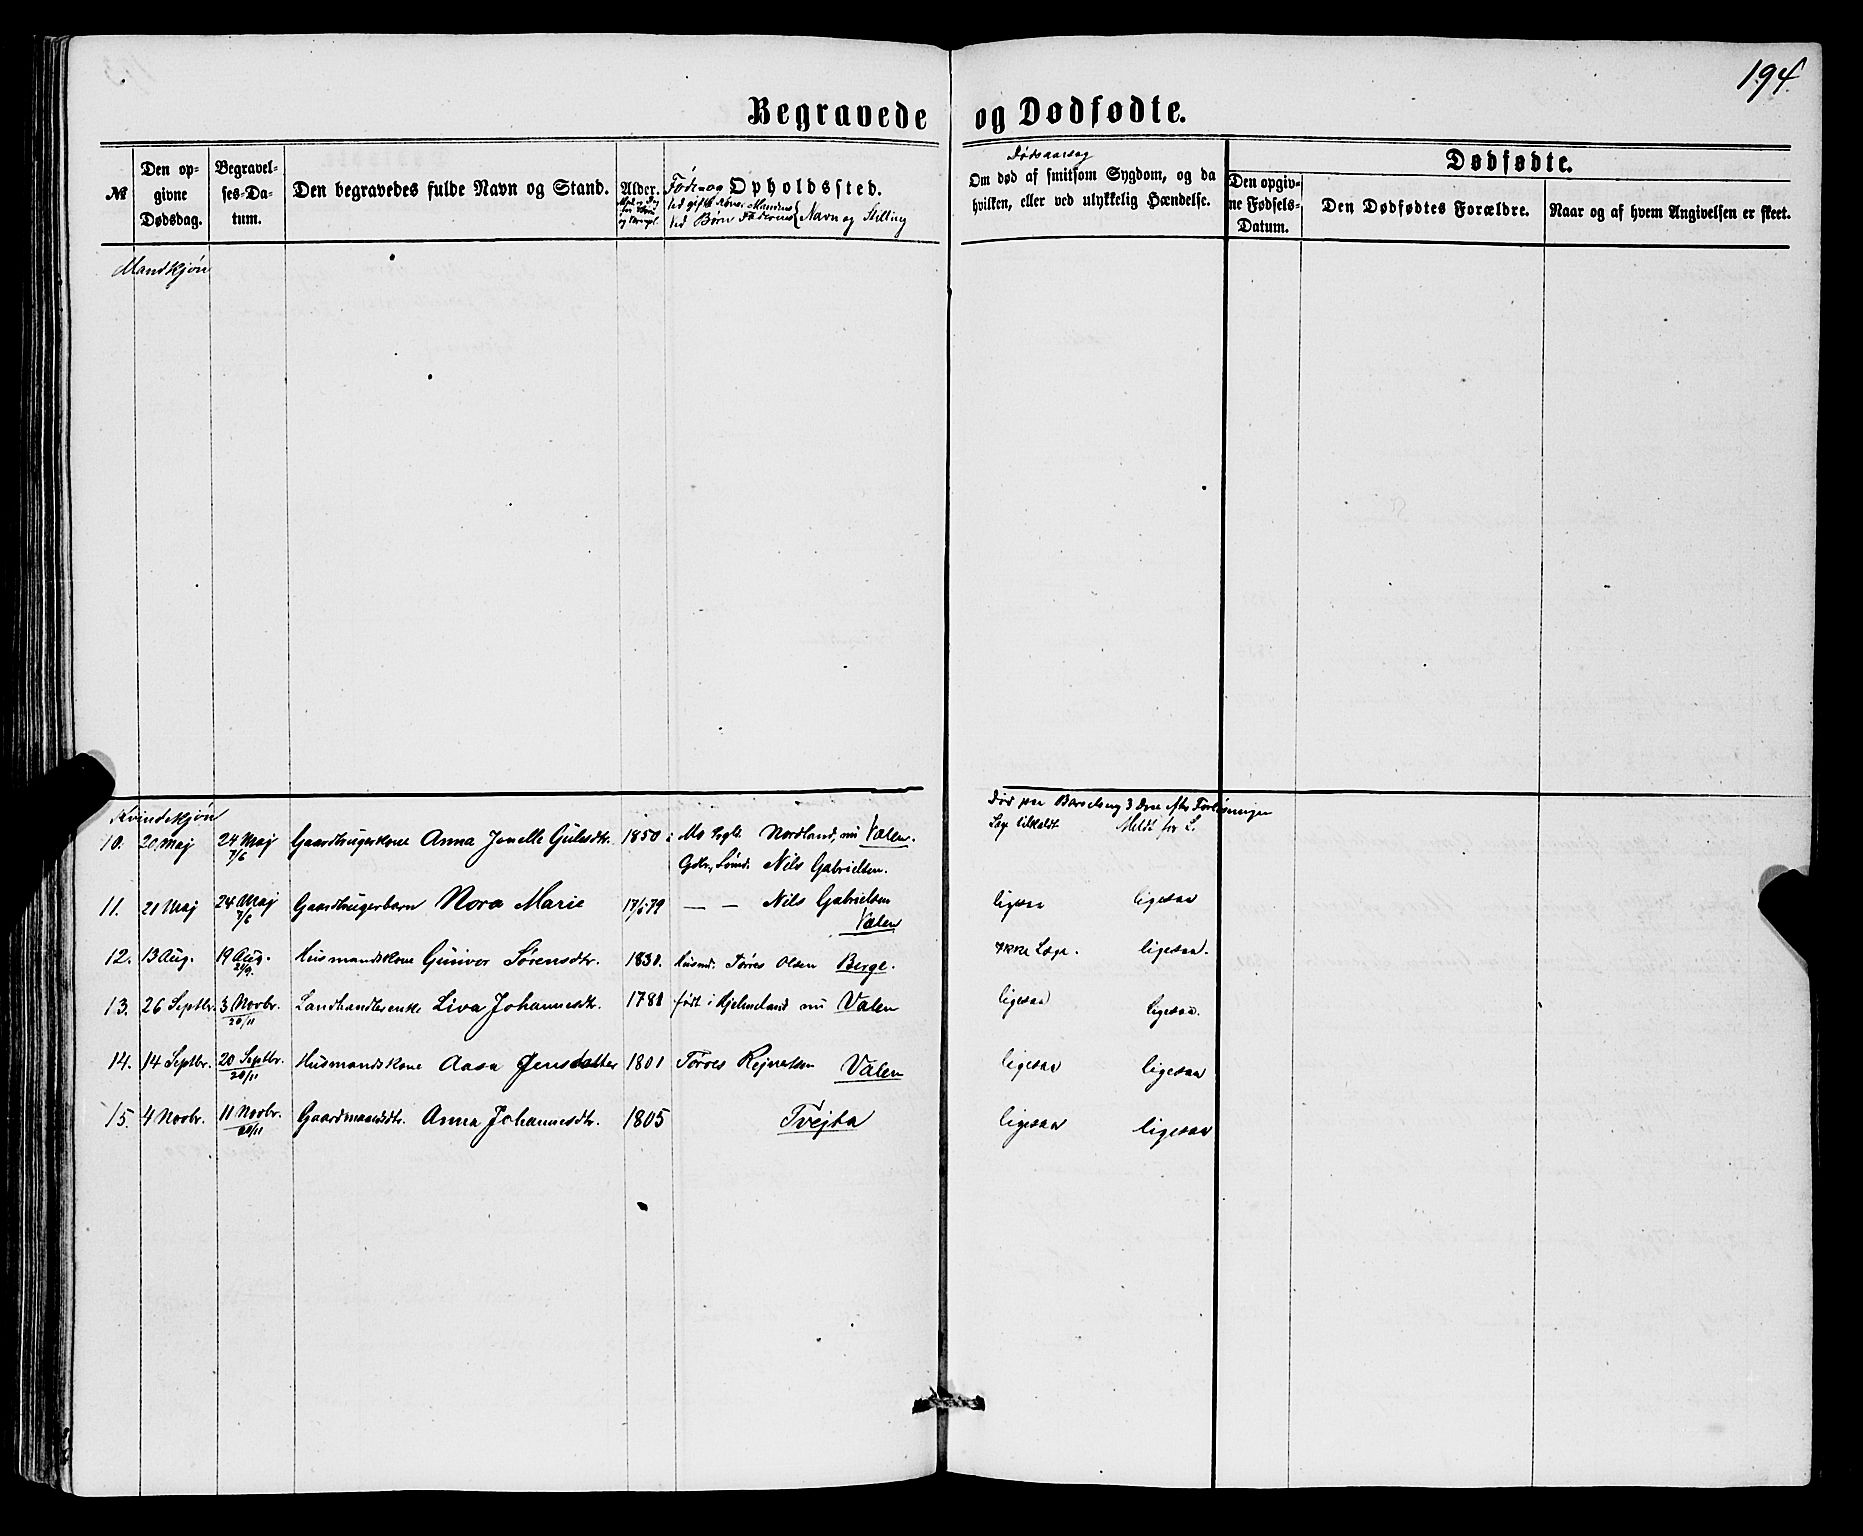 194.
Begravede og Dødfødte.
№
Den opgivne Dødsdag.
Begravelses-Datum.
Den begravedes fulde Navn og Stand.
Alder.
Føde- og Opholdssted.
Ved gifte Koner Mandens
Ved Børn Faderens } Navn og Stilling
Dødsaarsag
Om død af smitsom Sygdom, og da
hvilken, eller ved ulykkelig Hændelse.
Dødfødte.
Den opgivne Fødsels-Datum.
Den Dødfødtes Forældre.
Naar og af hvem Angivelsen er skeet.
Mandkjøn
Kvindekjøn
Død paa Barselseng 3 Dage efter Forløsningen
10. 20 Maj 24 Maj 7/6 Gaardbrugerkone Anna Jonelle Gulesdtr. 1850 Mo Sogle Nordland, nu Valen. Læge tilkaldt Meldt for L.
Nils Gabrielsen.
11. 21 Maj 24 Maj 7/6 Gaardbrugerbarn Nora Marie 17/5 79 — — Nils Gabrielsen ligesaa ligesaa
Valen
12. 13 Aug. 19 Aug. 21/9. Husmandskone Gunvor Sørensdtr. 1830. Husmd. Torres Olsen Berge. Ikke Læge. ligesaa.
13. 26 Septbr. 3 Novbr. 20/11 Landhandlerenke Liva Johannesdtr. 1781 født i Hjelmeland nu Valen ligesaa ligesaa.
14. 14 Septbr. 20 Septbr. 20/11 Husmandskone Aasa Jensdatter 1801 Torres Rejnertsen Valen ligesaa ligesaa
15. 4 Novbr. 11 Novbr. 20/11 Gaardmandsdtr. Anna Johannesdtr. 1805 Tvejta ligesaa ligesaa